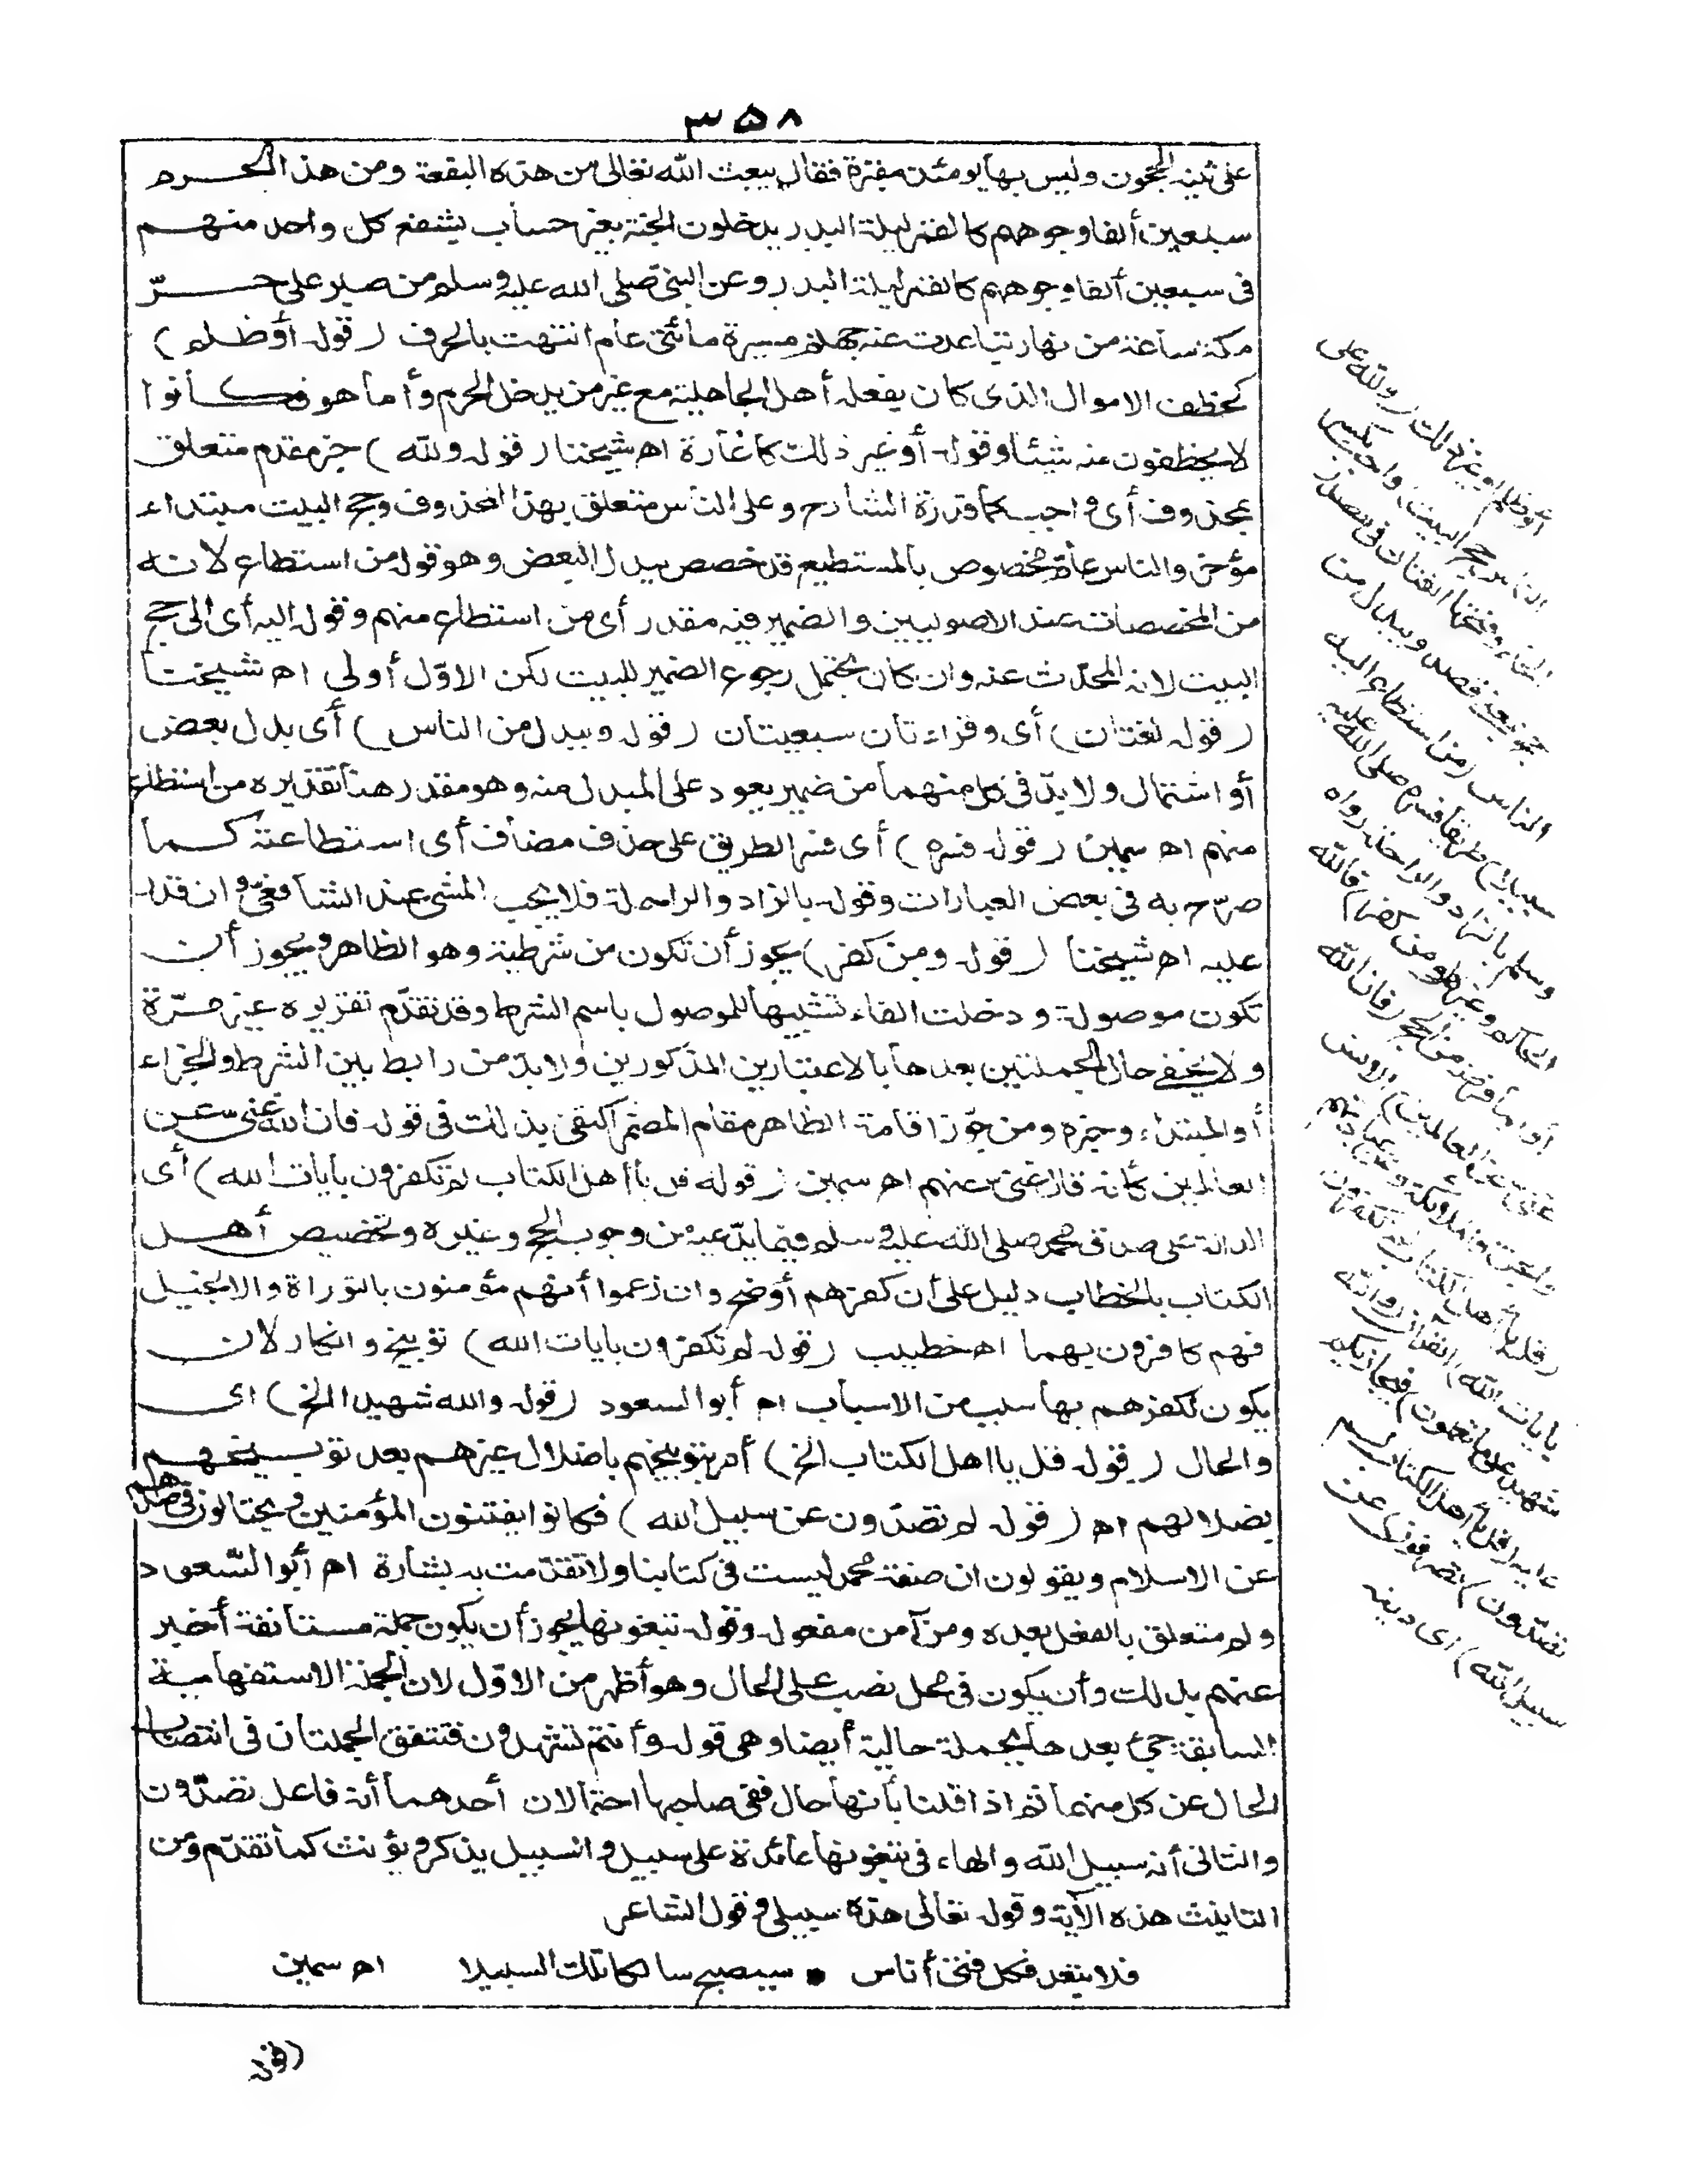 ٣٥٨
على ثنية الحجون وليس بها يومئذ مقبرة فقال يبعث الله تعالى من هذه البقعة ومن هذا الحرم
سبعين ألفا وجوههم كالقمر ليلة البدر يدخلون الجنة بغير حساب يشفع كل واحد منهم
فى سبعين ألفا وجوههم كالقمر ليلة البدر وعن النبىّ صلى الله عليه وسلم من صبر على حرّ
مكة ساعة من نهار تباعدت عنه جهنم مسيرة مائتى عام انتهت بالحرف (قوله أوظلم)
كخطف الاموال الذى كان يفعله أهل الجاهلية مع غير من يدخل الحرم وأما هو فكانوا
لا يخطفون منه شيئا وقوله أو غير ذلك كالغارة اه شيخنا (قوله ولله) خبر مقدم متعلق
بمحذوف أى واجب كما قدره الشارح وعلى الناس متعلق بهذا المحذوف وحج البيت مبتداء
مؤخر والناس عام مخصوص بالمستطيع قد خصص ببدل البعض وهو قوله من استطاع لانه
من المخصصات عند الاصوليين والضمير فيه مقدر أى من استطاع منهم وقوله اليه أى الى حج
البيت لانه المحدّث عنه وان كان يحتمل رجوع الضمير للبيت لكن الاوّل أولى اه شيخنا
(قوله لغتان) أى وقراءتان سبعيتان (قوله ويبدل من الناس) أى بدل بعض
أو اشتمال ولا بدّ فى كل منهما من ضمير يعود على المبدل منه وهو مقدر هنا تقديره من استطاع
منهم اه سمين (قوله فسره) أى فسر الطريق على حذف مضاف أى استطاعته كما
صرّح به فى بعض العبارات وقوله بالزاد والراحلة فلا يجب المشى عند الشافعىّ وان قدر
عليه اه شيخنا (قوله ومن كفر) يجوز أن تكون من شرطية وهو الظاهر ويجوز أن
تكون موصولة ودخلت الفاء تشبيها للموصول باسم الشرط وقد تقدّم تقريره غير مرّة
ولا يخفى حال الجملتين بعدها بالاعتبارين المذكورين ولا بد من رابط بين الشرط والجزاء
أو المبتداء وخبره ومن جوّز اقامة الظاهر مقام المضمر اكتفى بذلك فى قوله فان الله غنى عن
العالمين كأنه قال غنى عنهم اه سمين (قوله قل يا أهل الكتاب لم تكفرون بآيات الله) أى
الدالة على صدق محمد صلى الله عليه وسلم فيما يدّعيه من وجوب الحج وغيره وتخصيص أهل
الكتاب بالخطاب دليل على أن كفرهم أوضح وان زعموا أنهم مؤمنون بالتوراة والانجيل
فهم كافرون بهما اه خطيب (قوله لم تكفرون بآيات الله) توبيخ وانكار لان
يكون لكفرهم بها سبب من الاسباب اه أبو السعود (قوله والله شهيد الخ) اى
والحال (قوله قل يا اهل الكتاب الخ) أمر بتوبيخهم باضلال غيرهم بعد توبيخهم
بضلالهم اه (قوله لم تصدّون عن سبيل الله) فكانوا يفتنون المؤمنين ويحتالون فى صدهم
عن الاسلام ويقولون ان صفة محمد ليست فى كتابنا ولا تقدّمت به بشارة اه أبو السّعود
ولم متعلق بالفعل بعده ومن آمن مفعوله وقوله تبغونها يجوز أن يكون جملة مستأنفة أخبر
عنهم بذلك وأن يكون فى محل نصب على الحال وهو أظهر من الاوّل لان الجملة الاستفهامية
السابقة جىء بعدها بجملة حالية أيضا وهى قوله وأنتم تشهدون فتتفق الجملتان فى انتصاب
الحال عن كل منهما ثم اذا قلنا بأنها حال ففى صاحبها احتمالان أحدهما أنه فاعل تصدّون
والثانى أنه سبيل الله والهاء فى تبغونها عائدة على سبيل والسبيل يذكر ويؤنث كما تقدّم ومن
التانيث هذه الآية وقوله تعالى هذه سبيلى وقول الشاعر
فلا تبعد فكل فتى أناس • سيصبح سالكا تلك السبيلا اه سمين
أو ظلم أو غير ذلك (ولله على
الناس حج البيت) واجب بكسر
الحاء وفتحها لغتان فى مصدر
حج بمعنى قصد ويبدل من
الناس (من استطاع اليه
سبيلا) طريقا فسره صلى الله عليه
وسلم بالزاد والراحلة رواه
الحاكم وغيره (ومن كفر) بالله
أو بما فرضه من الحج (فان الله
غنى عن العالمين) الانس
والجن والملائكة وعن عبادتهم
(قل يا أهل الكتاب لم تكفرون
بآيات الله) القرآن (والله
شهيد على ما تعملون) فيجازيكم
عليه (قل يا أهل الكتاب لم
تصدّون) تصرفون (عن
سبيل الله) اى دينه
(قوله